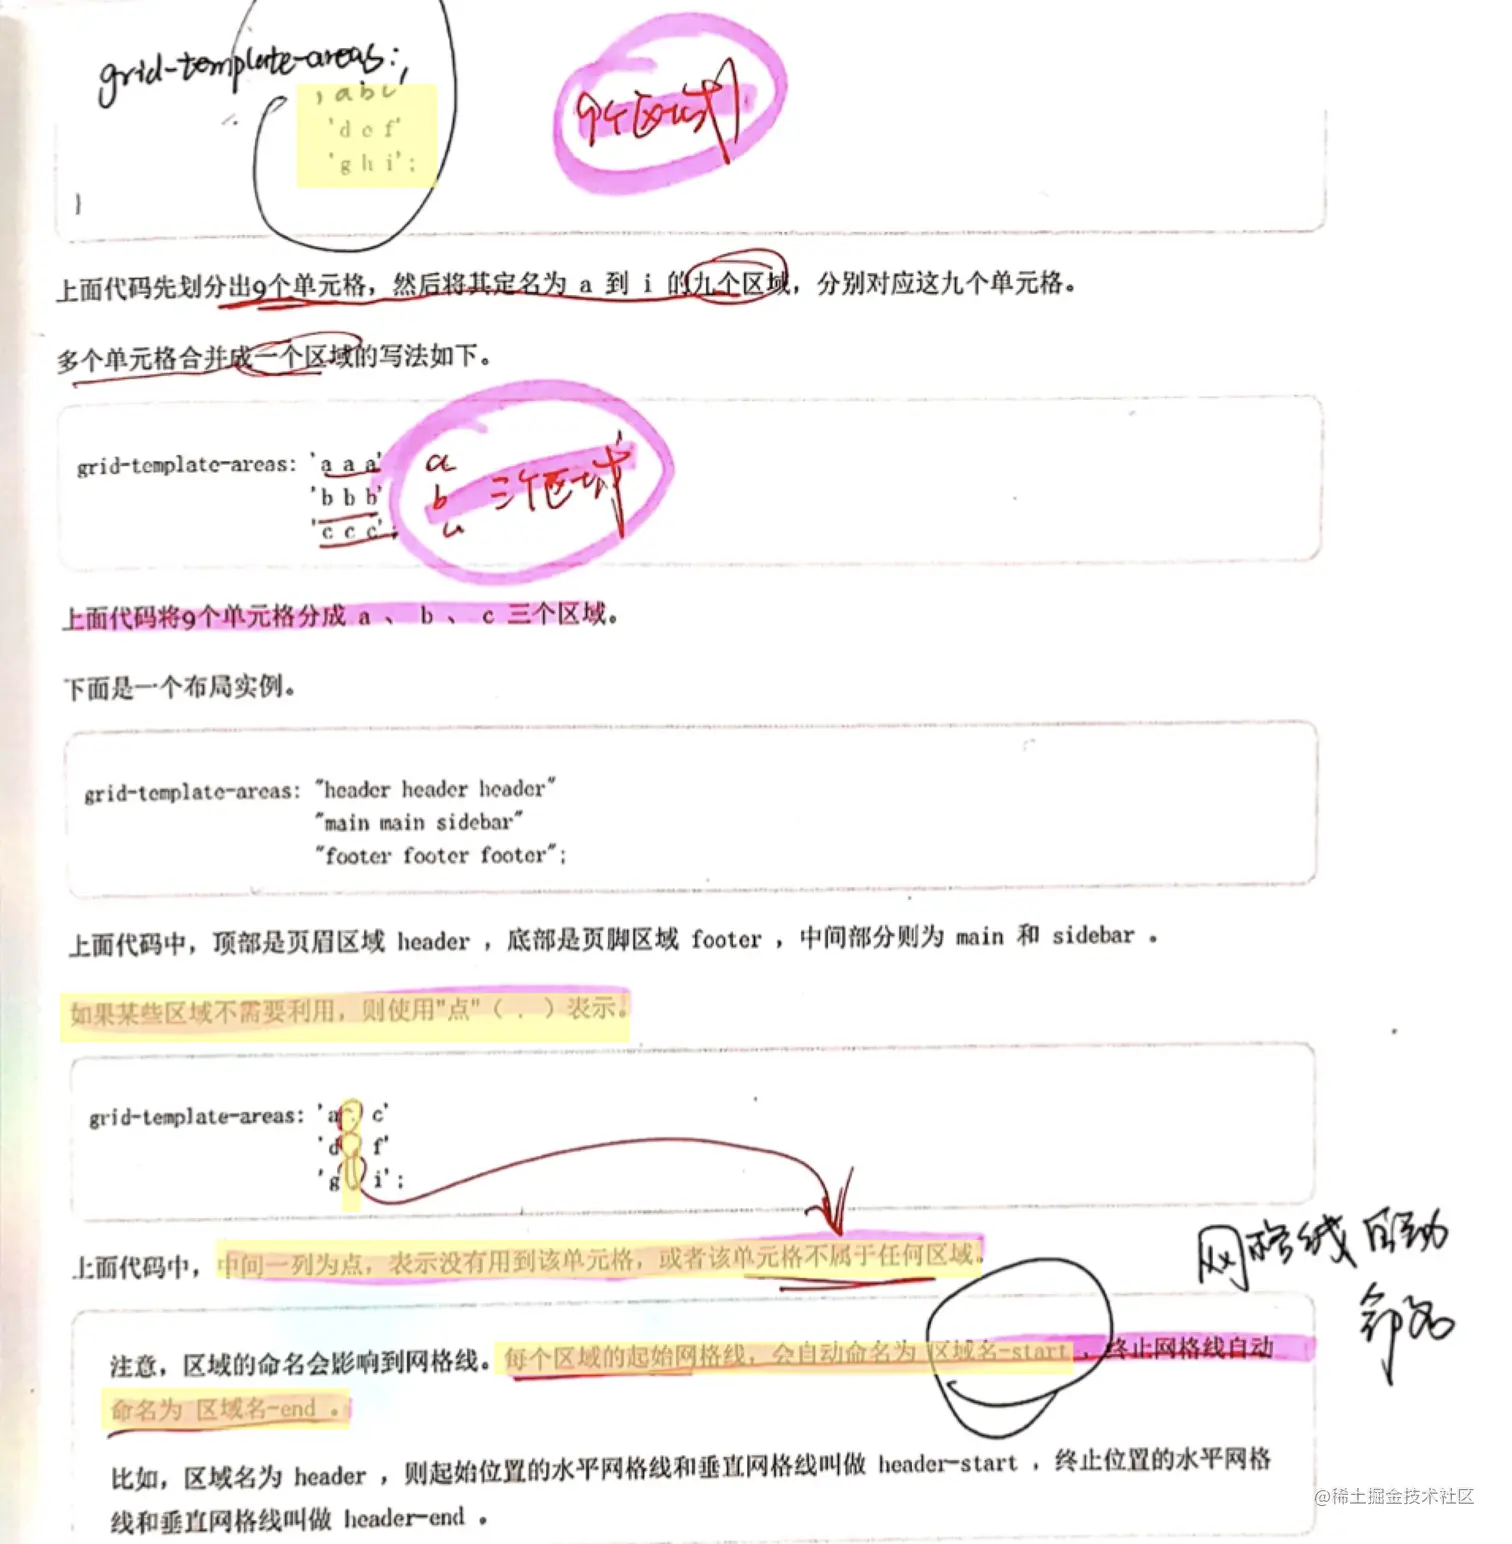 grid-template-areas:
'a b c'
'd e f'
'g h i';
9个区域
}
上面代码先划分出9个单元格，然后将其定名为 a 到 i 的九个区域，分别对应这九个单元格。
多个单元格合并成一个区域的写法如下。
grid-template-areas: 'a a a' a
'b b b' b 三个区域
'c c c'; c
上面代码将9个单元格分成 a 、 b 、 c 三个区域。
下面是一个布局实例。
grid-template-areas: "header header header"
"main main sidebar"
"footer footer footer";
上面代码中，顶部是页眉区域 header ，底部是页脚区域 footer ，中间部分则为 main 和 sidebar 。
如果某些区域不需要利用，则使用"点"（ . ）表示。
grid-template-areas: 'a . c'
'd . f'
'g . i';
上面代码中，中间一列为点，表示没有用到该单元格，或者该单元格不属于任何区域。
网格线自动
命名
注意，区域的命名会影响到网格线。每个区域的起始网格线，会自动命名为 区域名-start ，终止网格线自动
命名为 区域名-end 。
比如，区域名为 header ，则起始位置的水平网格线和垂直网格线叫做 header-start ，终止位置的水平网格
线和垂直网格线叫做 header-end 。
@稀土掘金技术社区